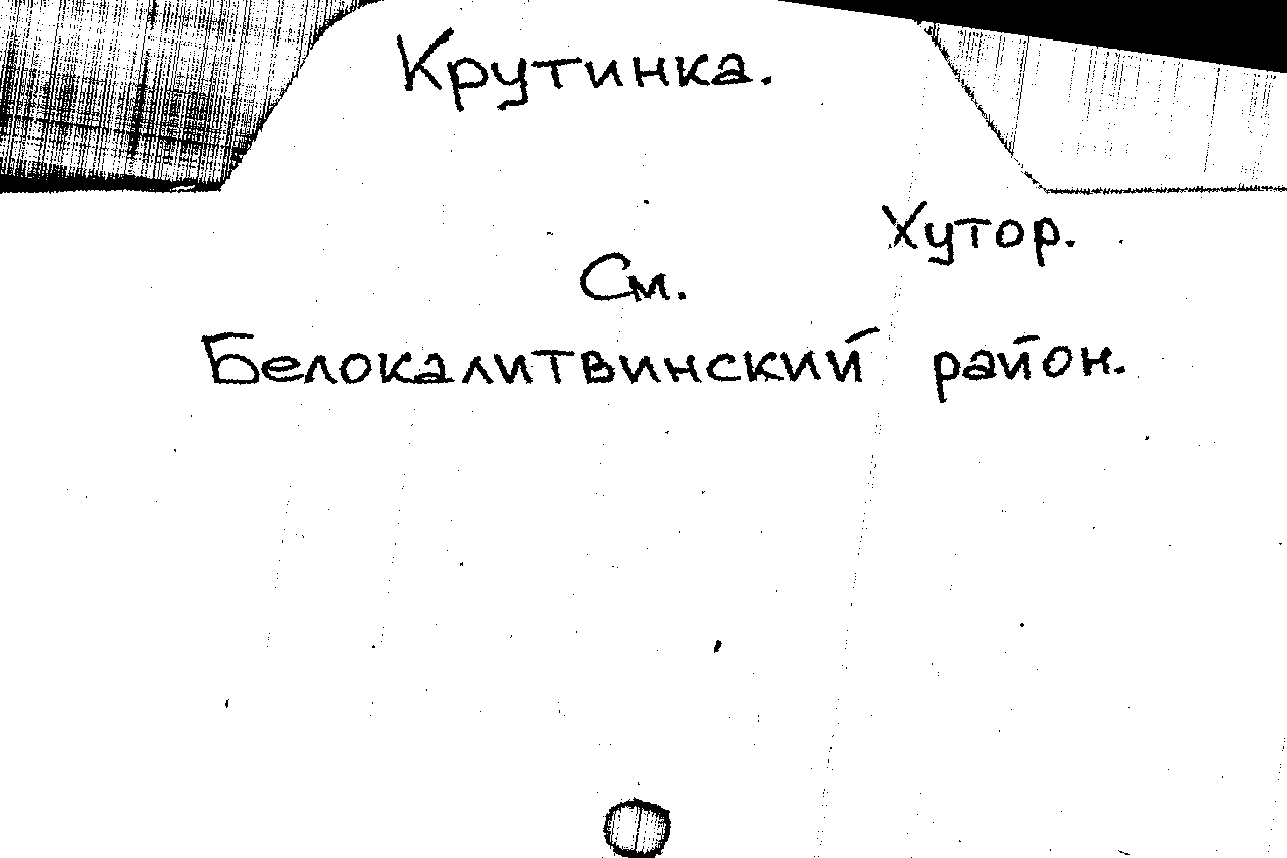 Крутинка.
Хутор.
См.
Белокалитвинский район.